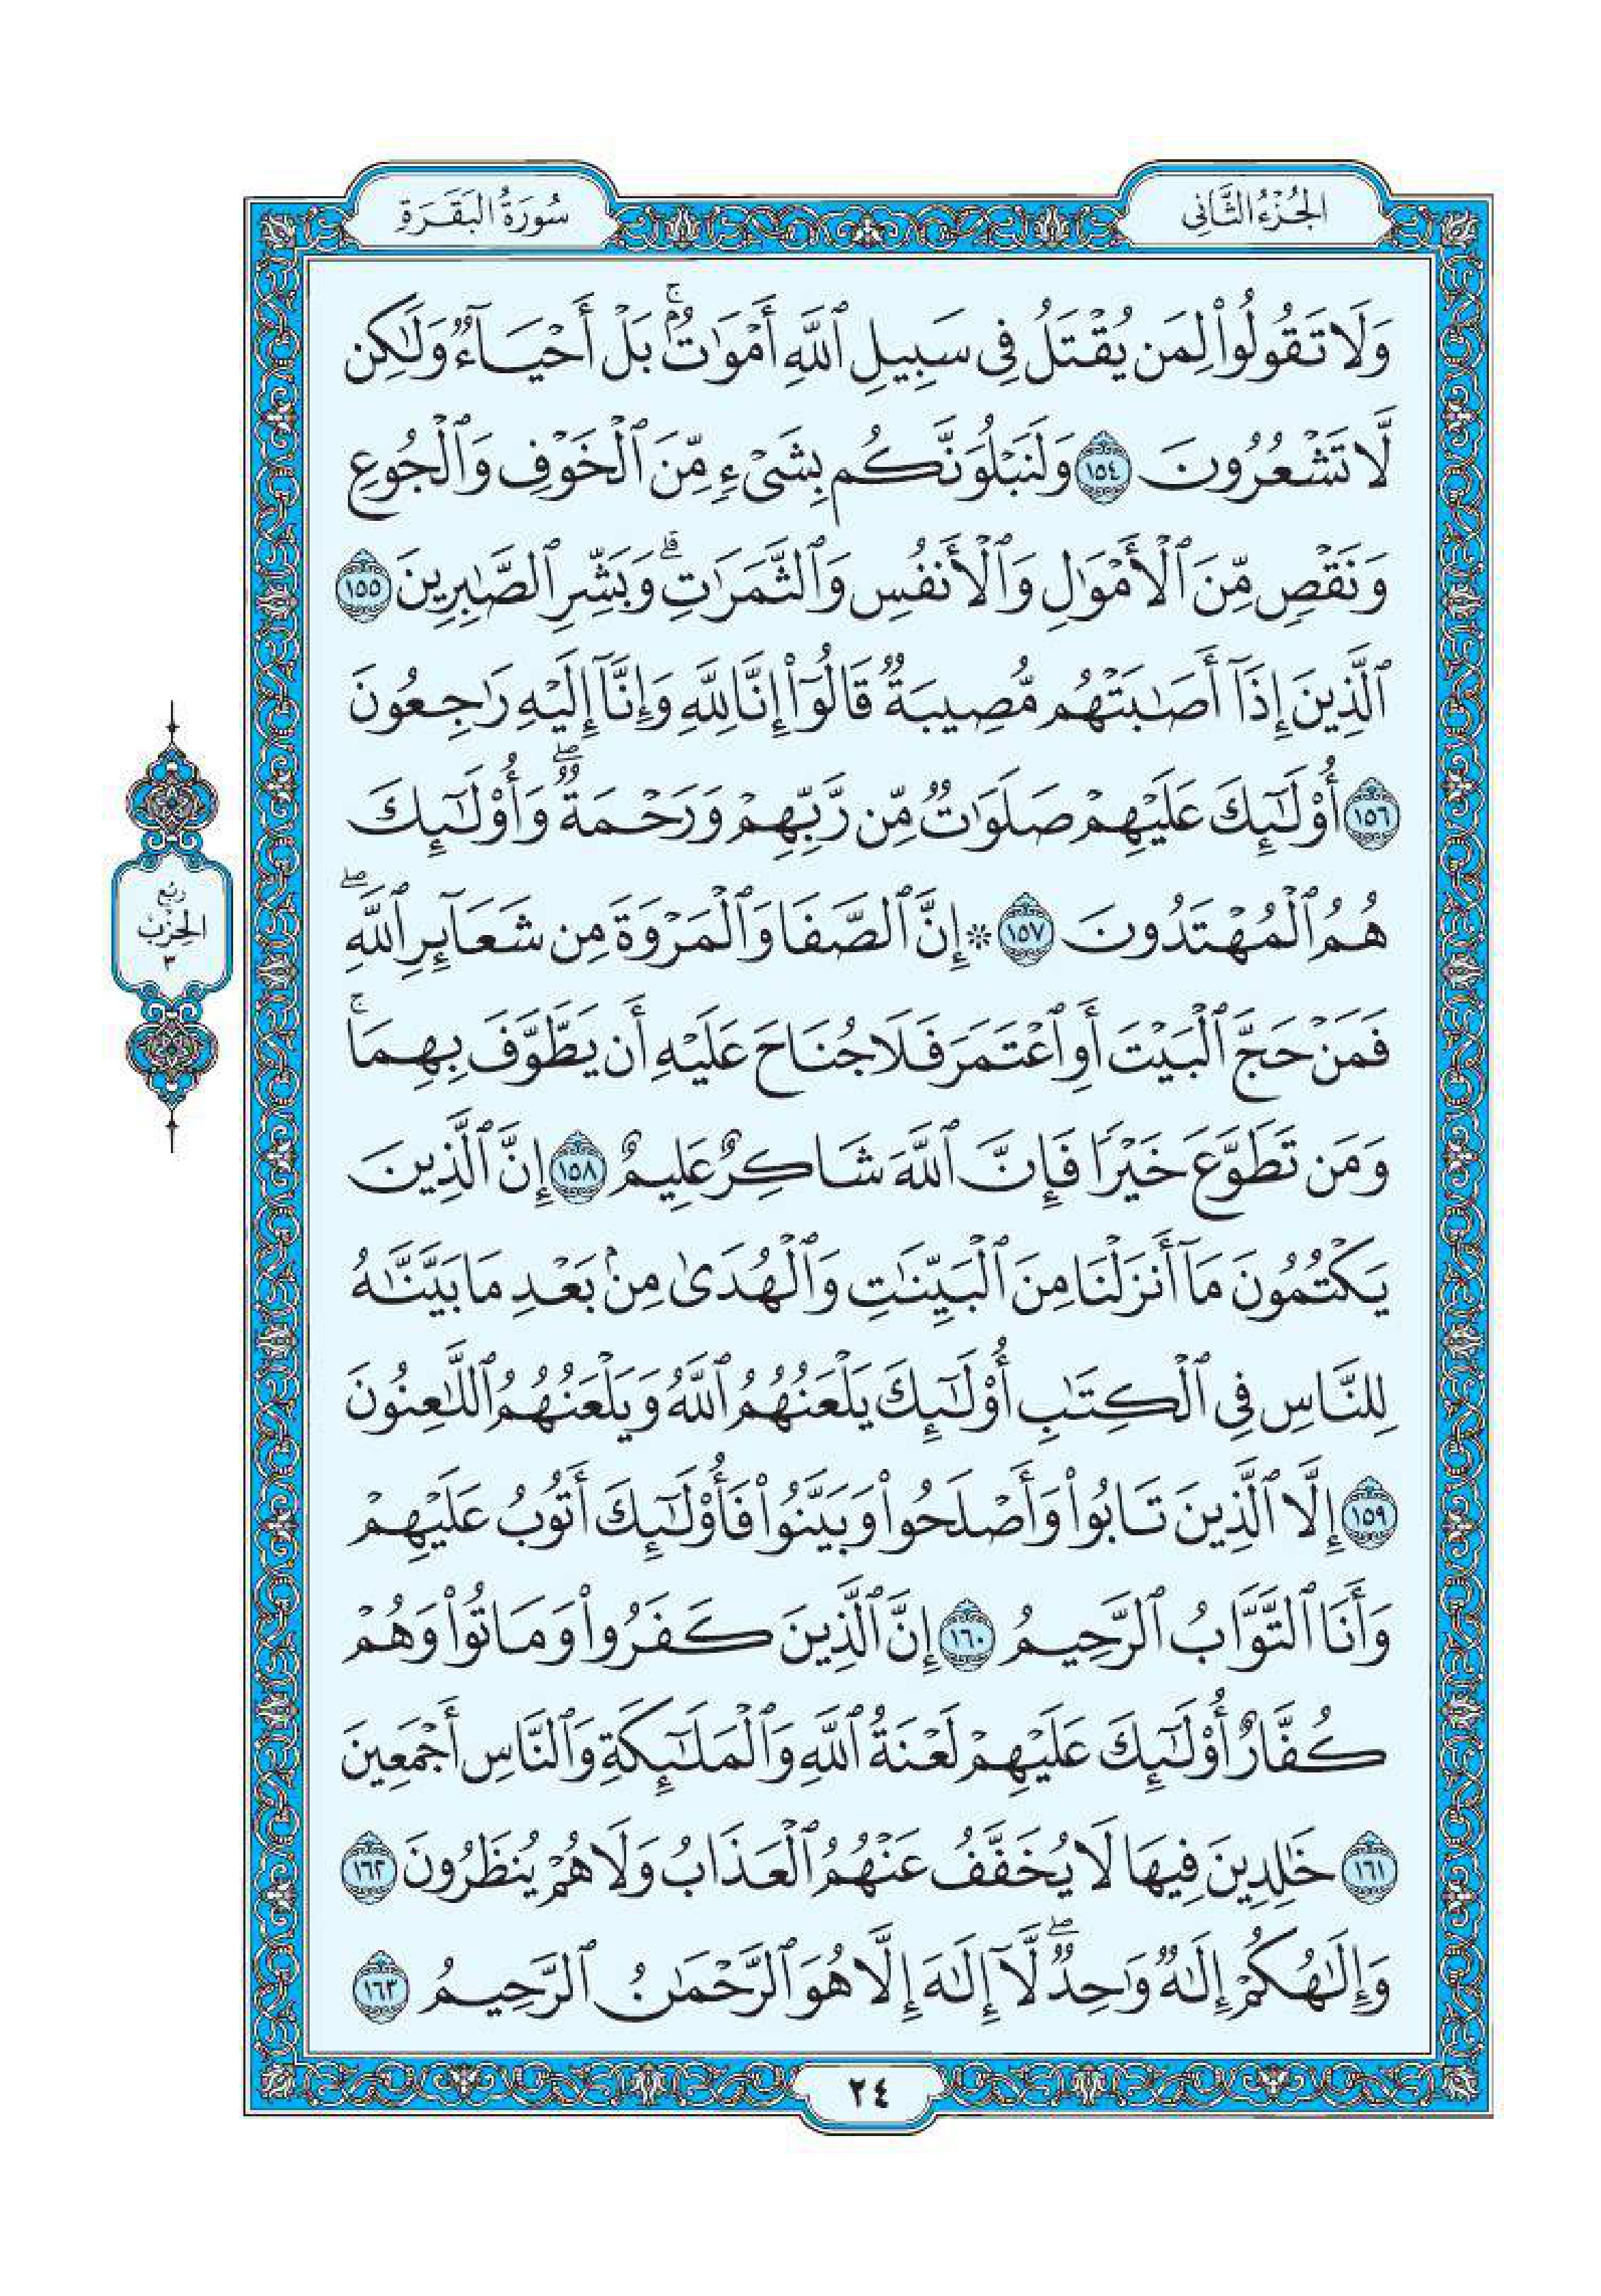 الجُزْءُ الثَّانِي
سُورَةُ البَقَرَةِ
وَلَا تَقُولُواْ لِمَن يُقۡتَلُ فِي سَبِيلِ ٱللَّهِ أَمۡوَٰتُۢۚ بَلۡ أَحۡيَآءٞ وَلَٰكِن
لَّا تَشۡعُرُونَ ١٥٤ وَلَنَبۡلُوَنَّكُم بِشَيۡءٖ مِّنَ ٱلۡخَوۡفِ وَٱلۡجُوعِ
وَنَقۡصٖ مِّنَ ٱلۡأَمۡوَٰلِ وَٱلۡأَنفُسِ وَٱلثَّمَرَٰتِۗ وَبَشِّرِ ٱلصَّٰبِرِينَ ١٥٥
ٱلَّذِينَ إِذَآ أَصَٰبَتۡهُم مُّصِيبَةٞ قَالُوٓاْ إِنَّا لِلَّهِ وَإِنَّآ إِلَيۡهِ رَٰجِعُونَ
١٥٦ أُوْلَٰٓئِكَ عَلَيۡهِمۡ صَلَوَٰتٞ مِّن رَّبِّهِمۡ وَرَحۡمَةٞۖ وَأُوْلَٰٓئِكَ
هُمُ ٱلۡمُهۡتَدُونَ ١٥٧ ۞ إِنَّ ٱلصَّفَا وَٱلۡمَرۡوَةَ مِن شَعَآئِرِ ٱللَّهِۖ
فَمَنۡ حَجَّ ٱلۡبَيۡتَ أَوِ ٱعۡتَمَرَ فَلَا جُنَاحَ عَلَيۡهِ أَن يَطَّوَّفَ بِهِمَاۚ
وَمَن تَطَوَّعَ خَيۡرٗا فَإِنَّ ٱللَّهَ شَاكِرٌ عَلِيمٌ ١٥٨ إِنَّ ٱلَّذِينَ
يَكۡتُمُونَ مَآ أَنزَلۡنَا مِنَ ٱلۡبَيِّنَٰتِ وَٱلۡهُدَىٰ مِنۢ بَعۡدِ مَا بَيَّنَّٰهُ
لِلنَّاسِ فِي ٱلۡكِتَٰبِ أُوْلَٰٓئِكَ يَلۡعَنُهُمُ ٱللَّهُ وَيَلۡعَنُهُمُ ٱللَّٰعِنُونَ
١٥٩ إِلَّا ٱلَّذِينَ تَابُواْ وَأَصۡلَحُواْ وَبَيَّنُواْ فَأُوْلَٰٓئِكَ أَتُوبُ عَلَيۡهِمۡ
وَأَنَا ٱلتَّوَّابُ ٱلرَّحِيمُ ١٦٠ إِنَّ ٱلَّذِينَ كَفَرُواْ وَمَاتُواْ وَهُمۡ
كُفَّارٌ أُوْلَٰٓئِكَ عَلَيۡهِمۡ لَعۡنَةُ ٱللَّهِ وَٱلۡمَلَٰٓئِكَةِ وَٱلنَّاسِ أَجۡمَعِينَ
١٦١ خَٰلِدِينَ فِيهَا لَا يُخَفَّفُ عَنۡهُمُ ٱلۡعَذَابُ وَلَا هُمۡ يُنظَرُونَ ١٦٢
وَإِلَٰهُكُمۡ إِلَٰهٞ وَٰحِدٞۖ لَّآ إِلَٰهَ إِلَّا هُوَ ٱلرَّحۡمَٰنُ ٱلرَّحِيمُ ١٦٣
رُبع
الحِزْب
٣
٢٤